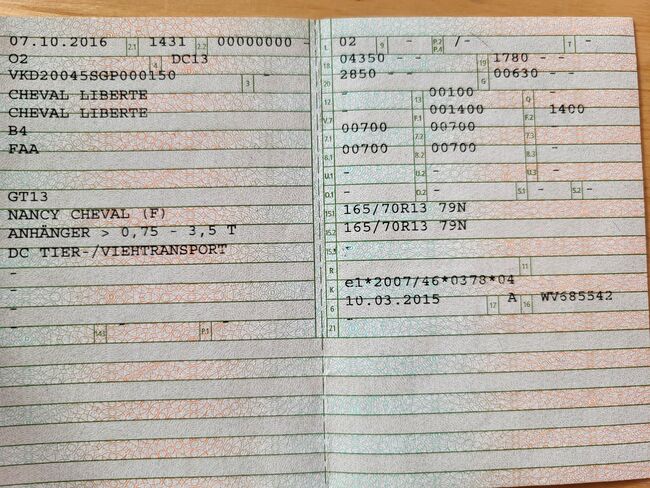 07.10.2016 2.1 1431 2.2 00000000 -
O2 4 DC13
VKD20045SGP000150 3 -
CHEVAL LIBERTE
CHEVAL LIBERTE
B4
FAA
GT13
NANCY CHEVAL (F)
ANHÄNGER > 0,75 - 3,5 T
DC TIER-/VIEHTRANSPORT
-
-
-
- 14.1 - P.1
L 02 9 - P.2 P.4 /- T -
18 04350 - - 19 1780 - -
20 2850 - - G 00630 - -
12 - 13 00100 Q -
V.7 - F.1 001400 F.2 1400
7.1 00700 7.2 00700 7.3 -
8.1 00700 8.2 00700 8.3 -
U.1 - U.2 - U.3 -
O.1 - O.2 - S.1 - S.2 -
15.1 165/70R13 79N
15.2 165/70R13 79N
15.3 -
R - 11 -
K e1*2007/46*0378*04
6 10.03.2015 17 A 16 WV685542
21 -